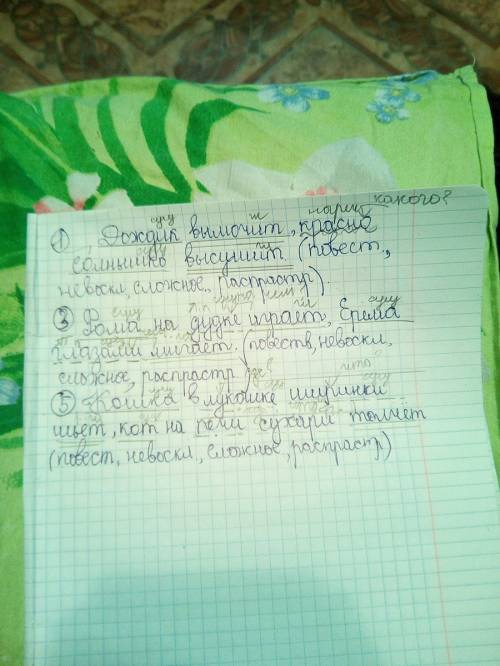 сущ гл нареч какого?
① Дождик вымочит, красно
сущ гл
солнышко высушит. (повест.,
невоскл, сложное, распрастр).
сущ гл сущ
③ Фома на дудке играет, Ерёма
глазами мигает. (повеств, невоскл,
сложное, распростр) где? что
⑤ Кошка в лукошке ширинки
шьёт, кот на печи сухари толчёт
(повест, невоскл., сложное, распрастр)